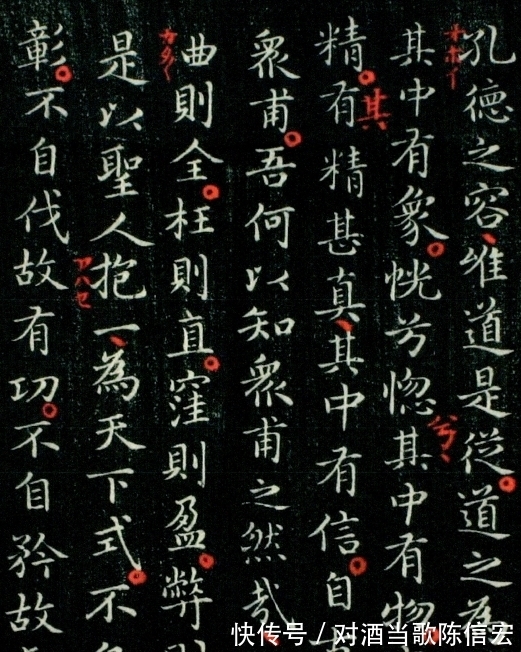 孔德之容、惟道是從。道之為
其中有象。恍兮惚其中有物
兮、
精。有精甚真、其中有信。自
其
衆甫。吾何以知衆甫之然哉
曲則全。枉則直。窪則盈。弊則
是以聖人抱一、為天下式。不
アハセ
彰。不自伐故有功。不自矜故
快传号 / 对酒当歌陈信宏